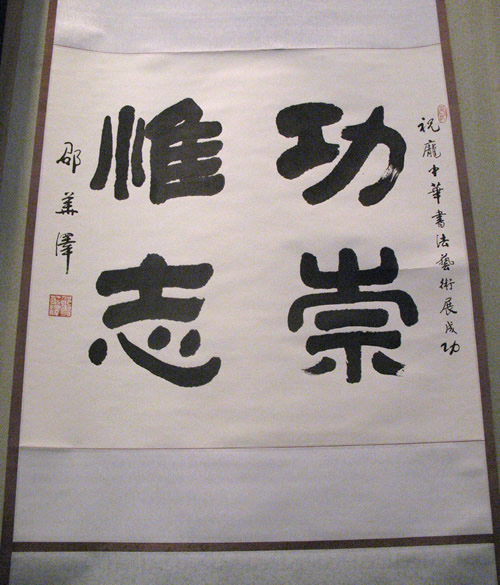 祝龐中華書法藝術展成功
功崇
惟志
邵華澤